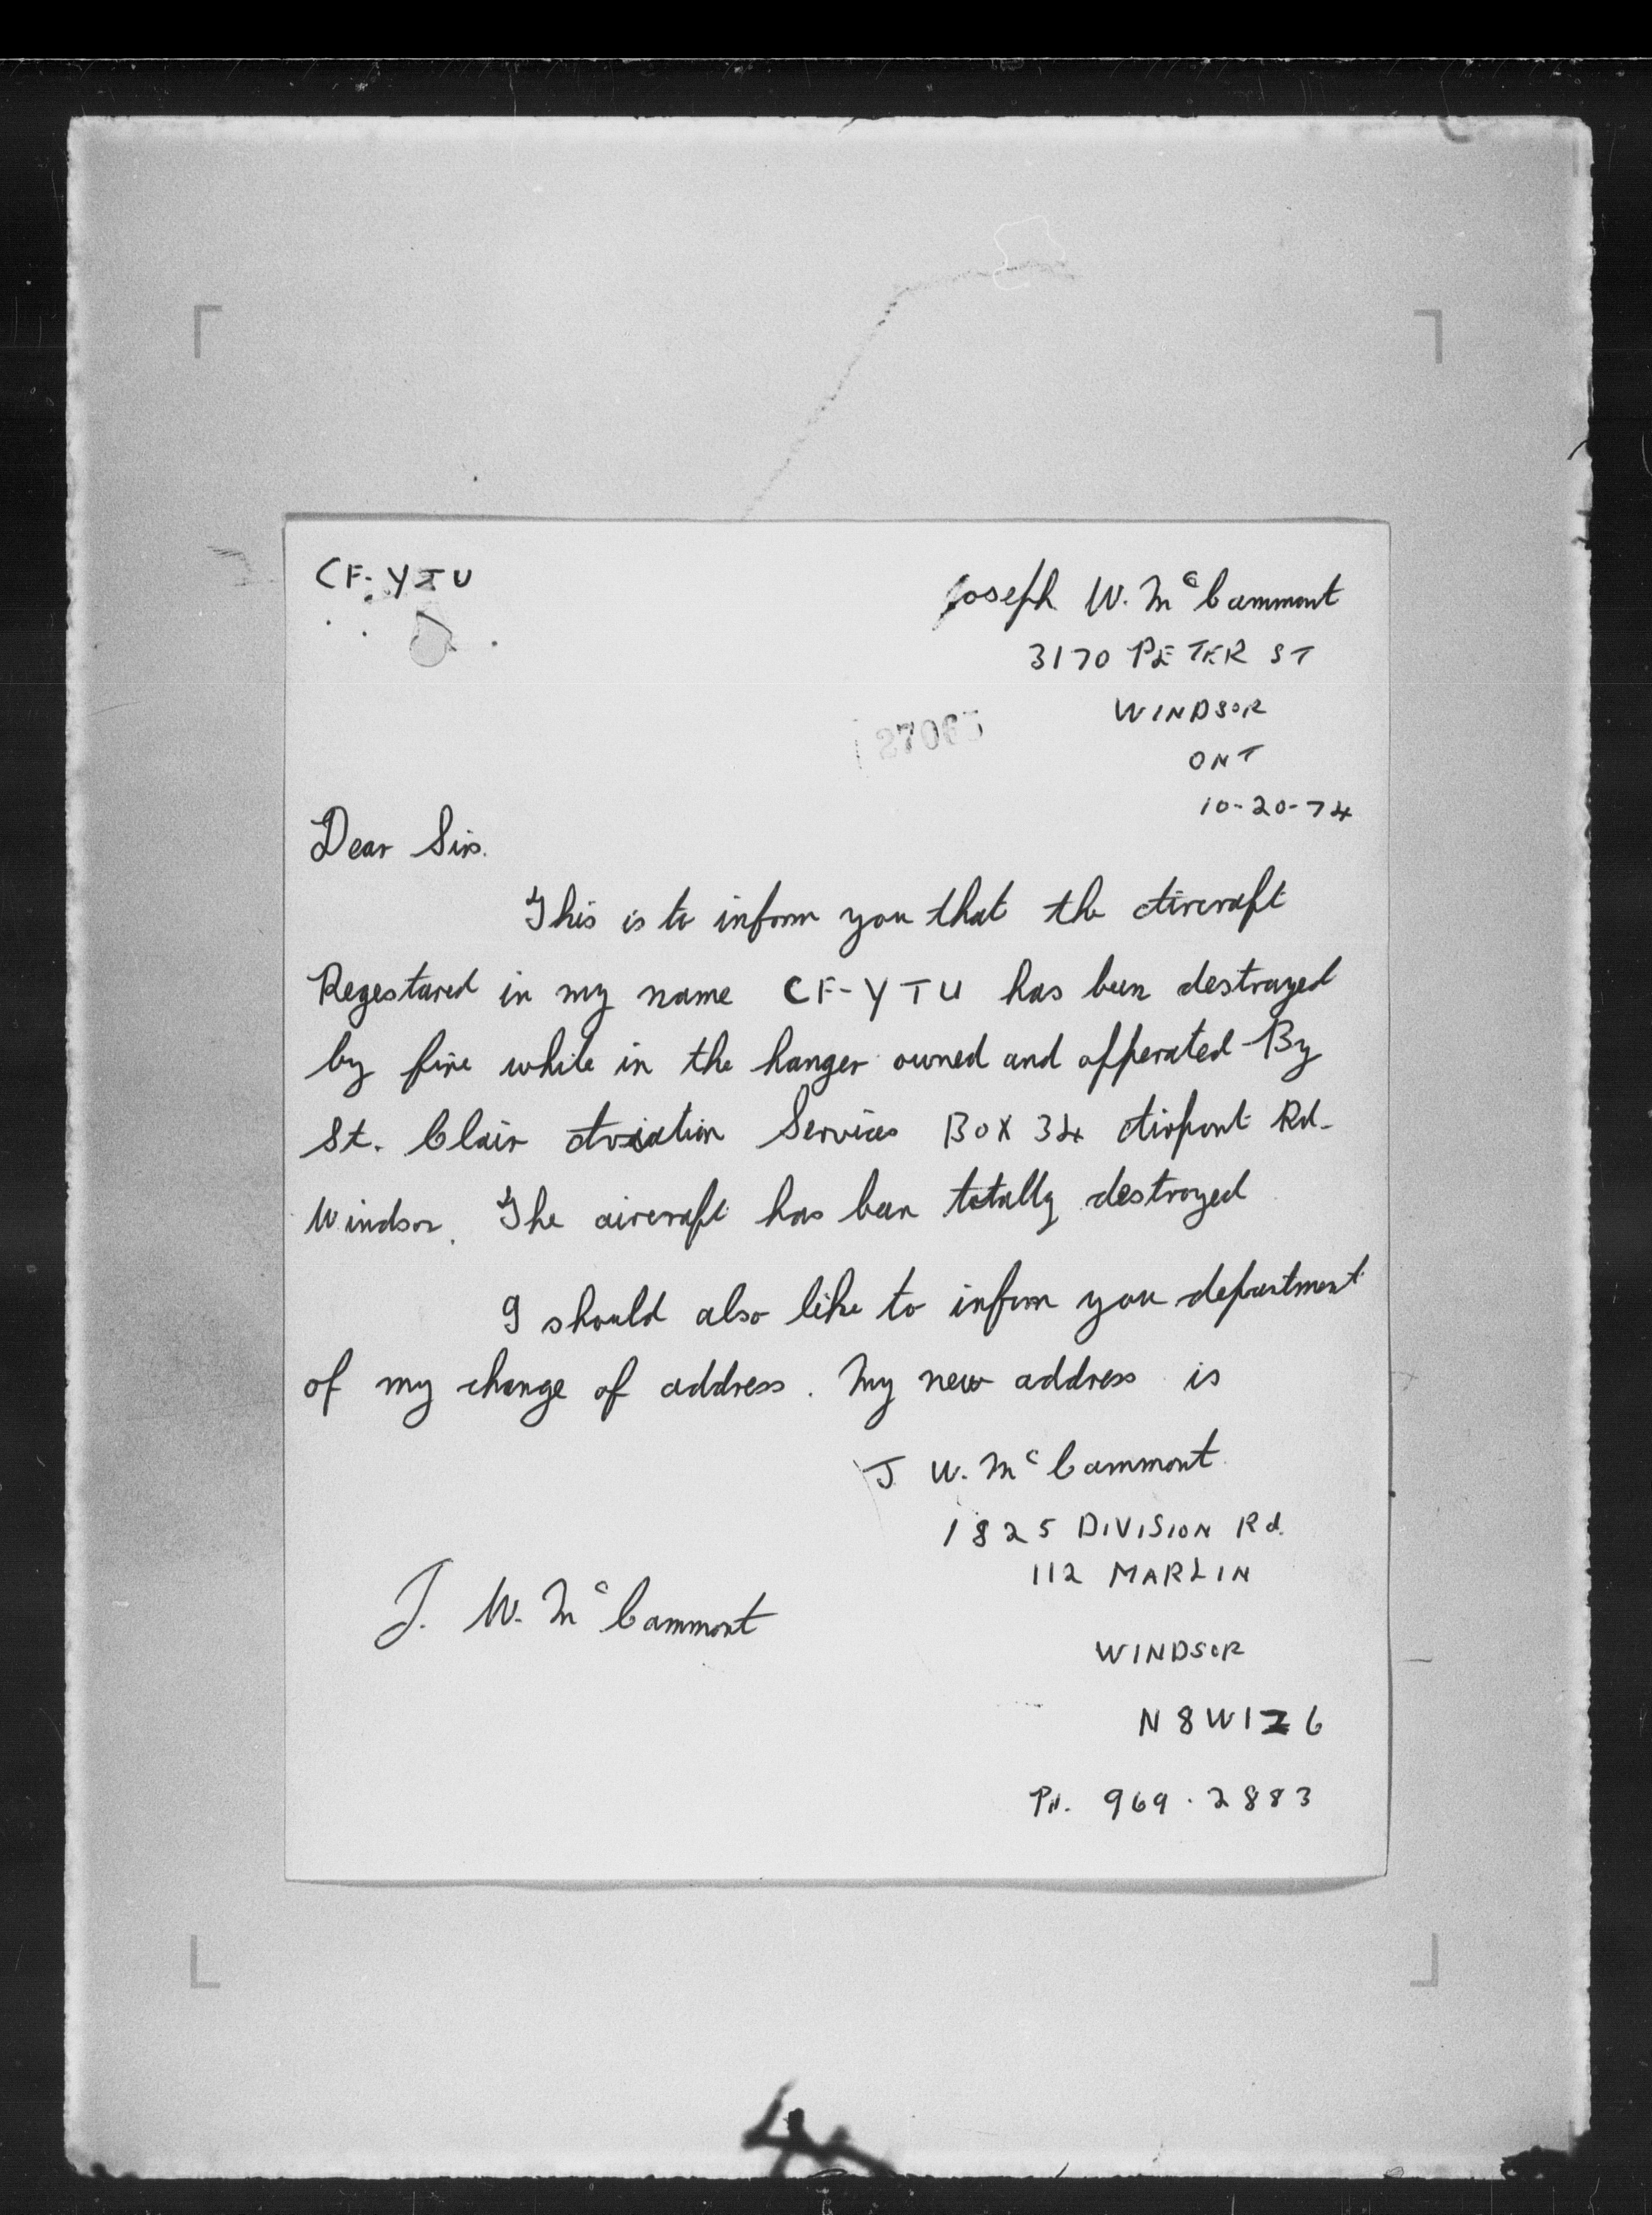 CF-YTU
Joseph W. McCammont
3170 PETER ST
WINDSOR
ONT
10-20-74
Dear Sir.
This is to inform you that the Aircraft
Regestared in my name CF-YTU has been destroyed
by fire while in the hanger owned and opperated By
St. Clair Aviation Services BOX 34 Airport Rd.
Windsor. The aircraft has been totally destroyed
I should also like to inform you department
of my change of address. My new address is
J W. McCammont
1825 DIVISION Rd.
112 MARLIN
WINDSOR
N8W1Z6
PH. 969.2883
J. W. McCammont